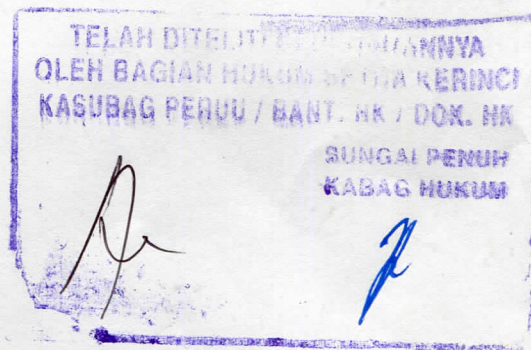 TELAH DITELITI
OLEH BAGIAN HUKUM SETDA KERINCI
KASUBAG PERUU / BANT. HK / DOK. HK
SUNGAI PENUH
KABAG HUKUM